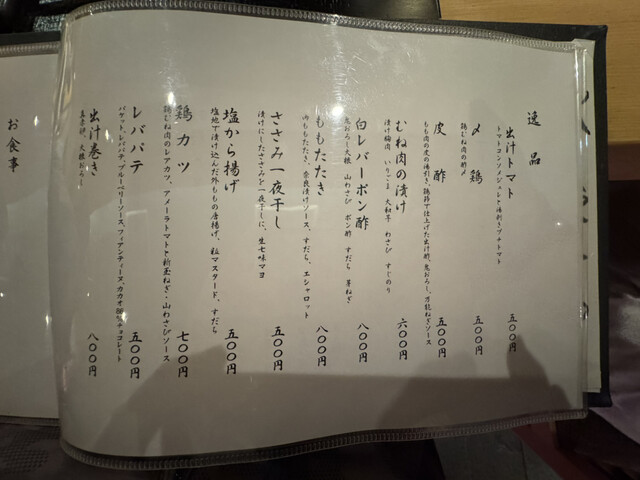 逸品
出汁トマト
トマトコンソメジュレと湯剥きプチトマト
五〇〇円
〆鶏
鶏むね肉の酢〆
五〇〇円
皮酢
もも肉の皮の湯引き、鶏節で仕上げた出汁酢、鬼おろし、万能ねぎソース
五〇〇円
むね肉の漬け
漬け胸肉 いりごま 大和芋 わさび すじのり
六〇〇円
白レバーポン酢
鬼おろし大根 山わさび ポン酢 すだち 芽ねぎ
八〇〇円
ももたたき
内ももたたき、奈良漬けソース、すだち、エシャロット
八〇〇円
ささみ一夜干し
漬けにしたささみを一夜干しに、生七味マヨ
五〇〇円
塩から揚げ
塩地で漬け込んだ外ももの唐揚げ、粒マスタード、すだち
五〇〇円
鶏カツ
鶏むね肉のレアカツ、アメーラトマトと新玉ねぎ・山わさびソース
七〇〇円
レバパテ
バケット、レバパテ、ブルーベリーソース、フィアンティーヌ、カカオ チョコレート
五〇〇円
出汁巻き
大根おろし
八〇〇円
お食事